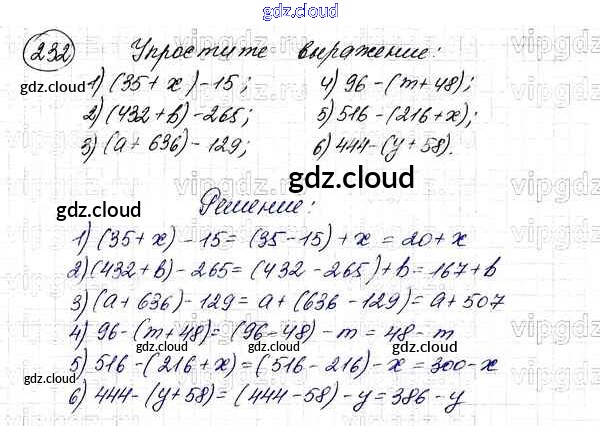 gdz.cloud
232 Упростите выражение:
1) (35+x)-15; 4) 96-(m+48);
gdz.cloud gdz.cloud
2) (432+b)-265; 5) 516-(216+x);
3) (a+636)-129; 6) 444-(y+58).
gdz.cloud
gdz.cloud Решение:
1) (35+x)-15=(35-15)+x=20+x
2) (432+b)-265=(432-265)+b=167+b
3) (a+636)-129=a+(636-129)=a+507
4) 96-(m+48)=(96-48)-m=48-m
gdz.cloud
5) 516-(216+x)=(516-216)-x=300-x
gdz.cloud
6) 444-(y+58)=(444-58)-y=386-y